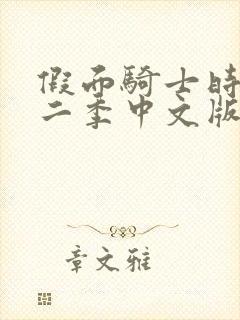 假面騎士時
二季中文版
章文雅